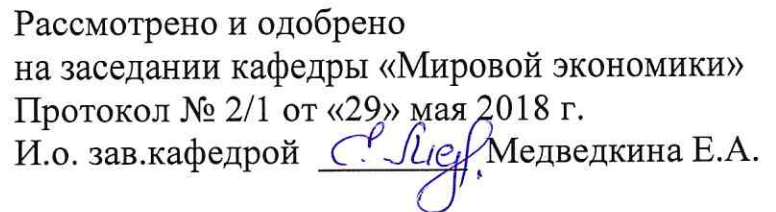 Рассмотрено и одобрено
на заседании кафедры «Мировой экономики»
Протокол № 2/1 от «29» мая 2018 г.
И.о. зав.кафедрой Медведкина Е.А.